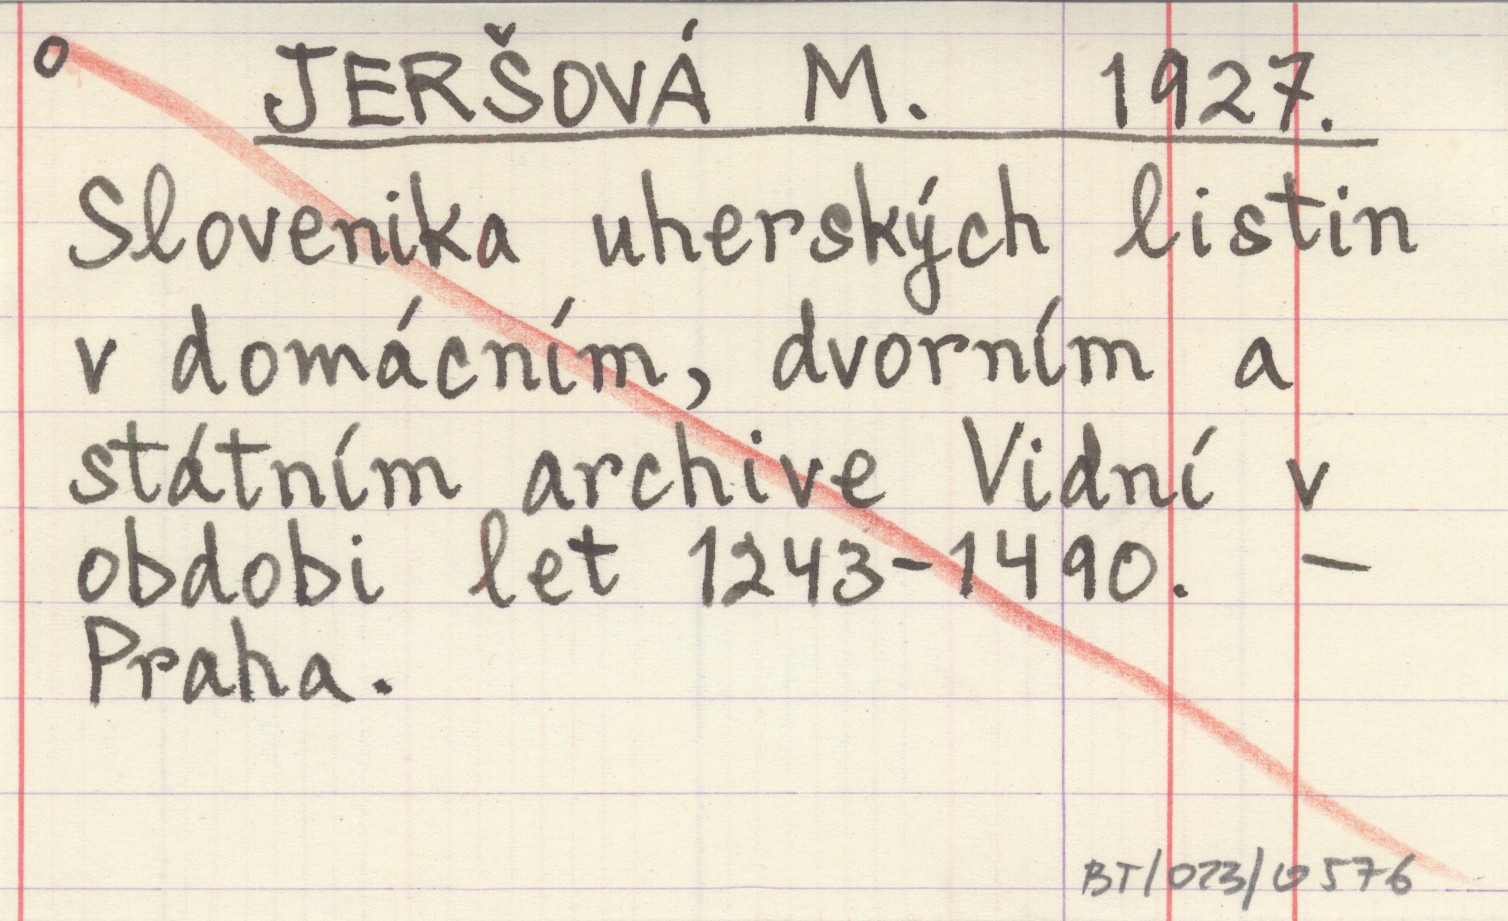 o JERŠOVÁ M. 1927.
Slovenika uherských listin
v domácním, dvorním a
státním archive Vidní v
obdobi let 1243-1490. —
Praha.
BT/023/0576